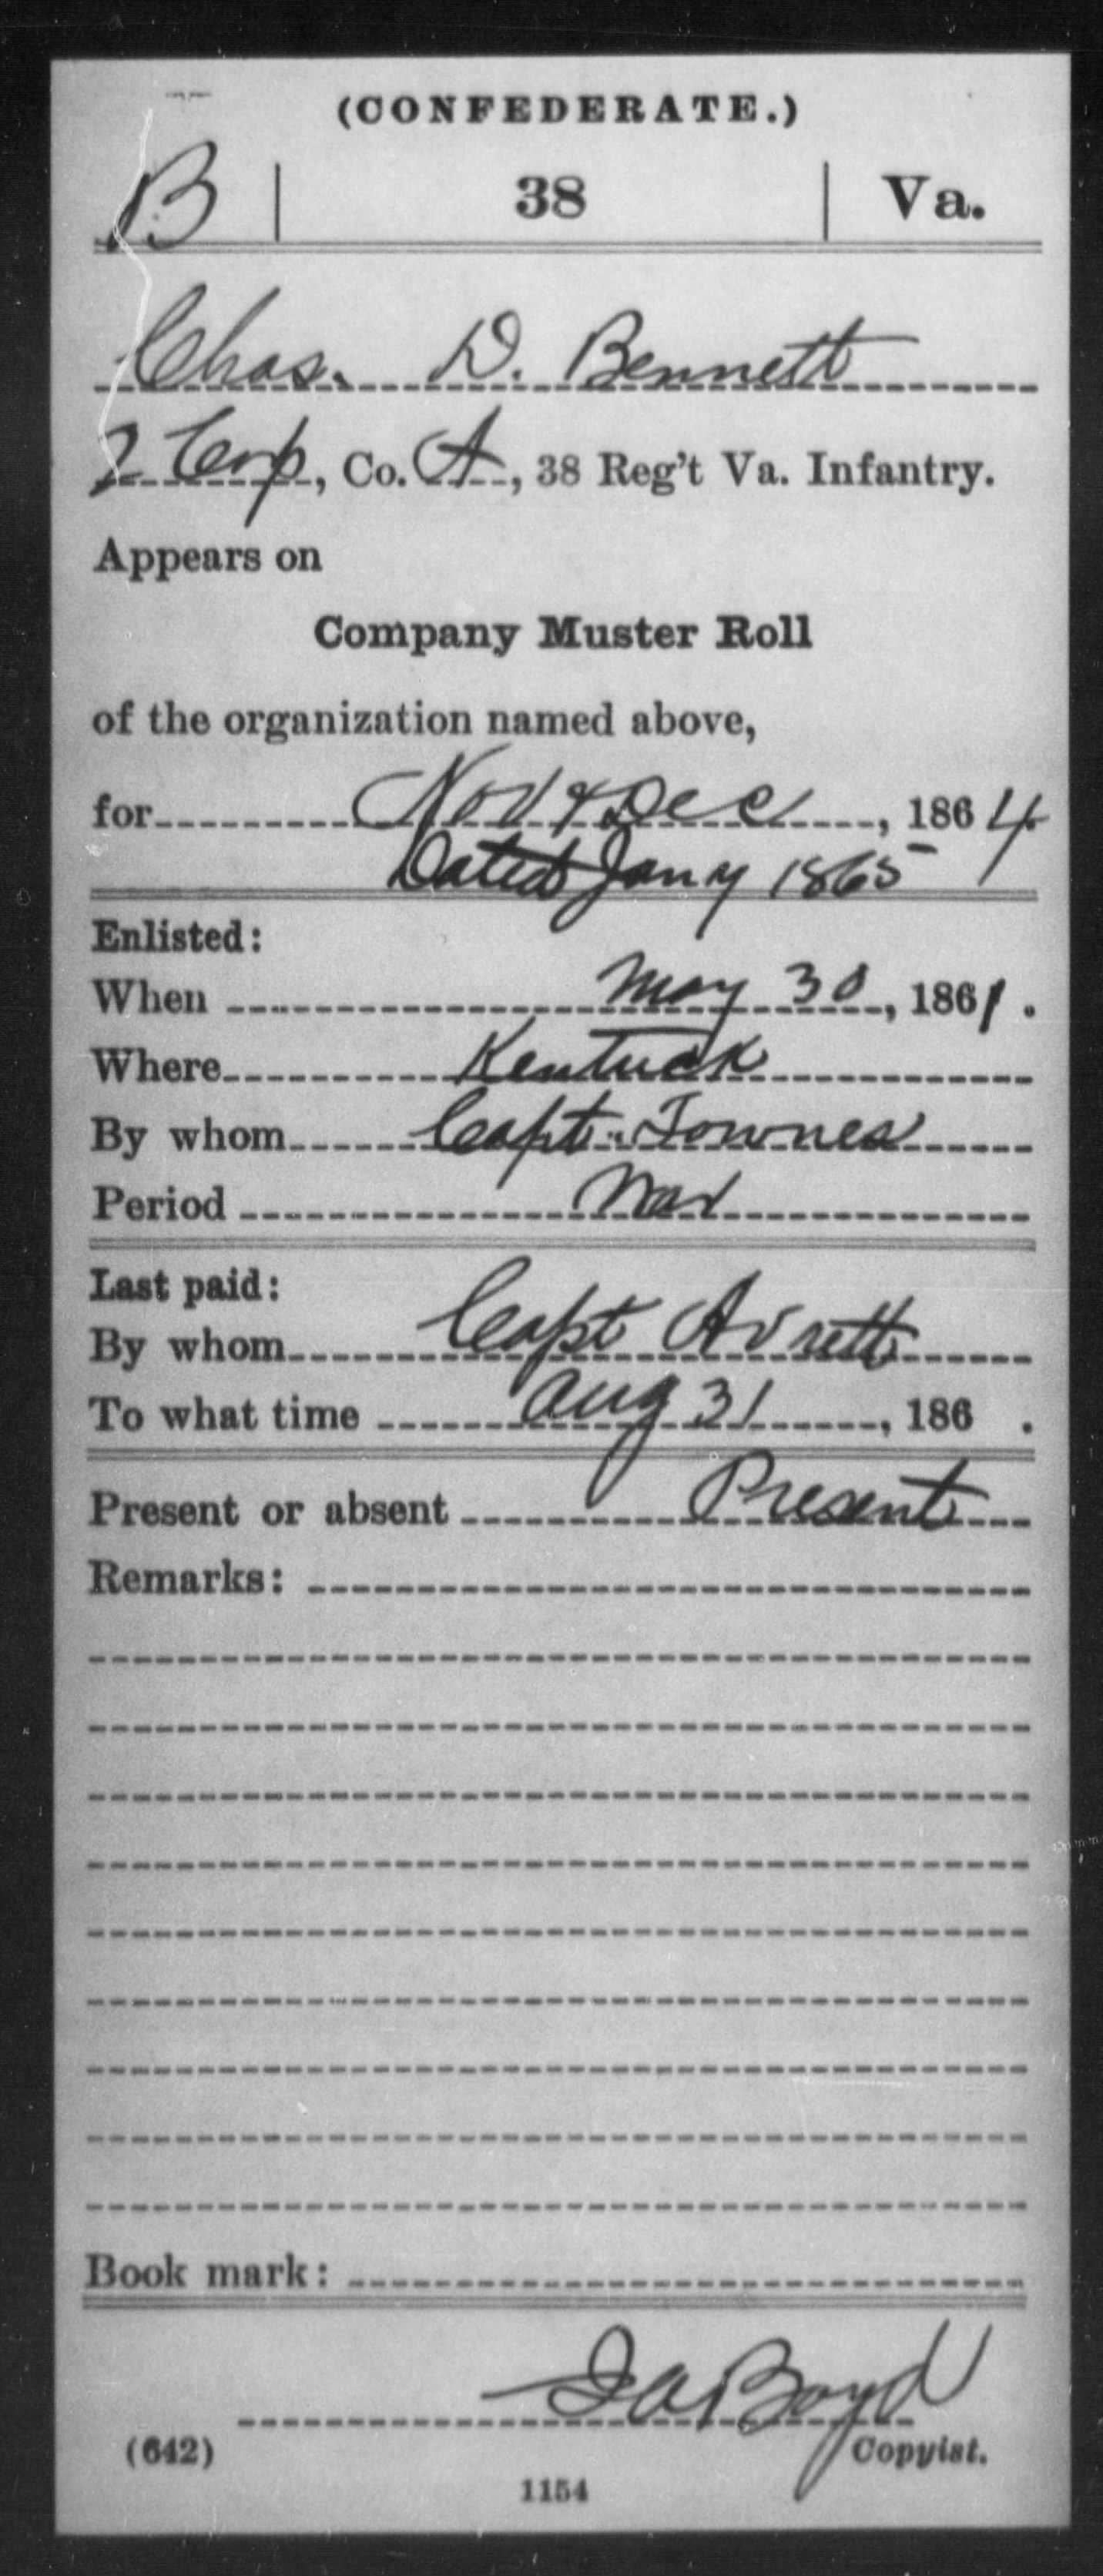 (CONFEDERATE.)
B | 38 | Va.
Chas. D. Bennett
2 Corp, Co. A, 38 Reg't Va. Infantry.
Appears on
Company Muster Roll
of the organization named above,
for Nov & Dec, 1864
Dated Jany 1865
Enlisted:
When May 30, 1861.
Where Kentuck
By whom Capt. Townes
Period War
Last paid:
By whom Capt Avrett
To what time Aug 31, 186 .
Present or absent Present
Remarks:
Book mark:
Boyd
(642) Copyist.
1154